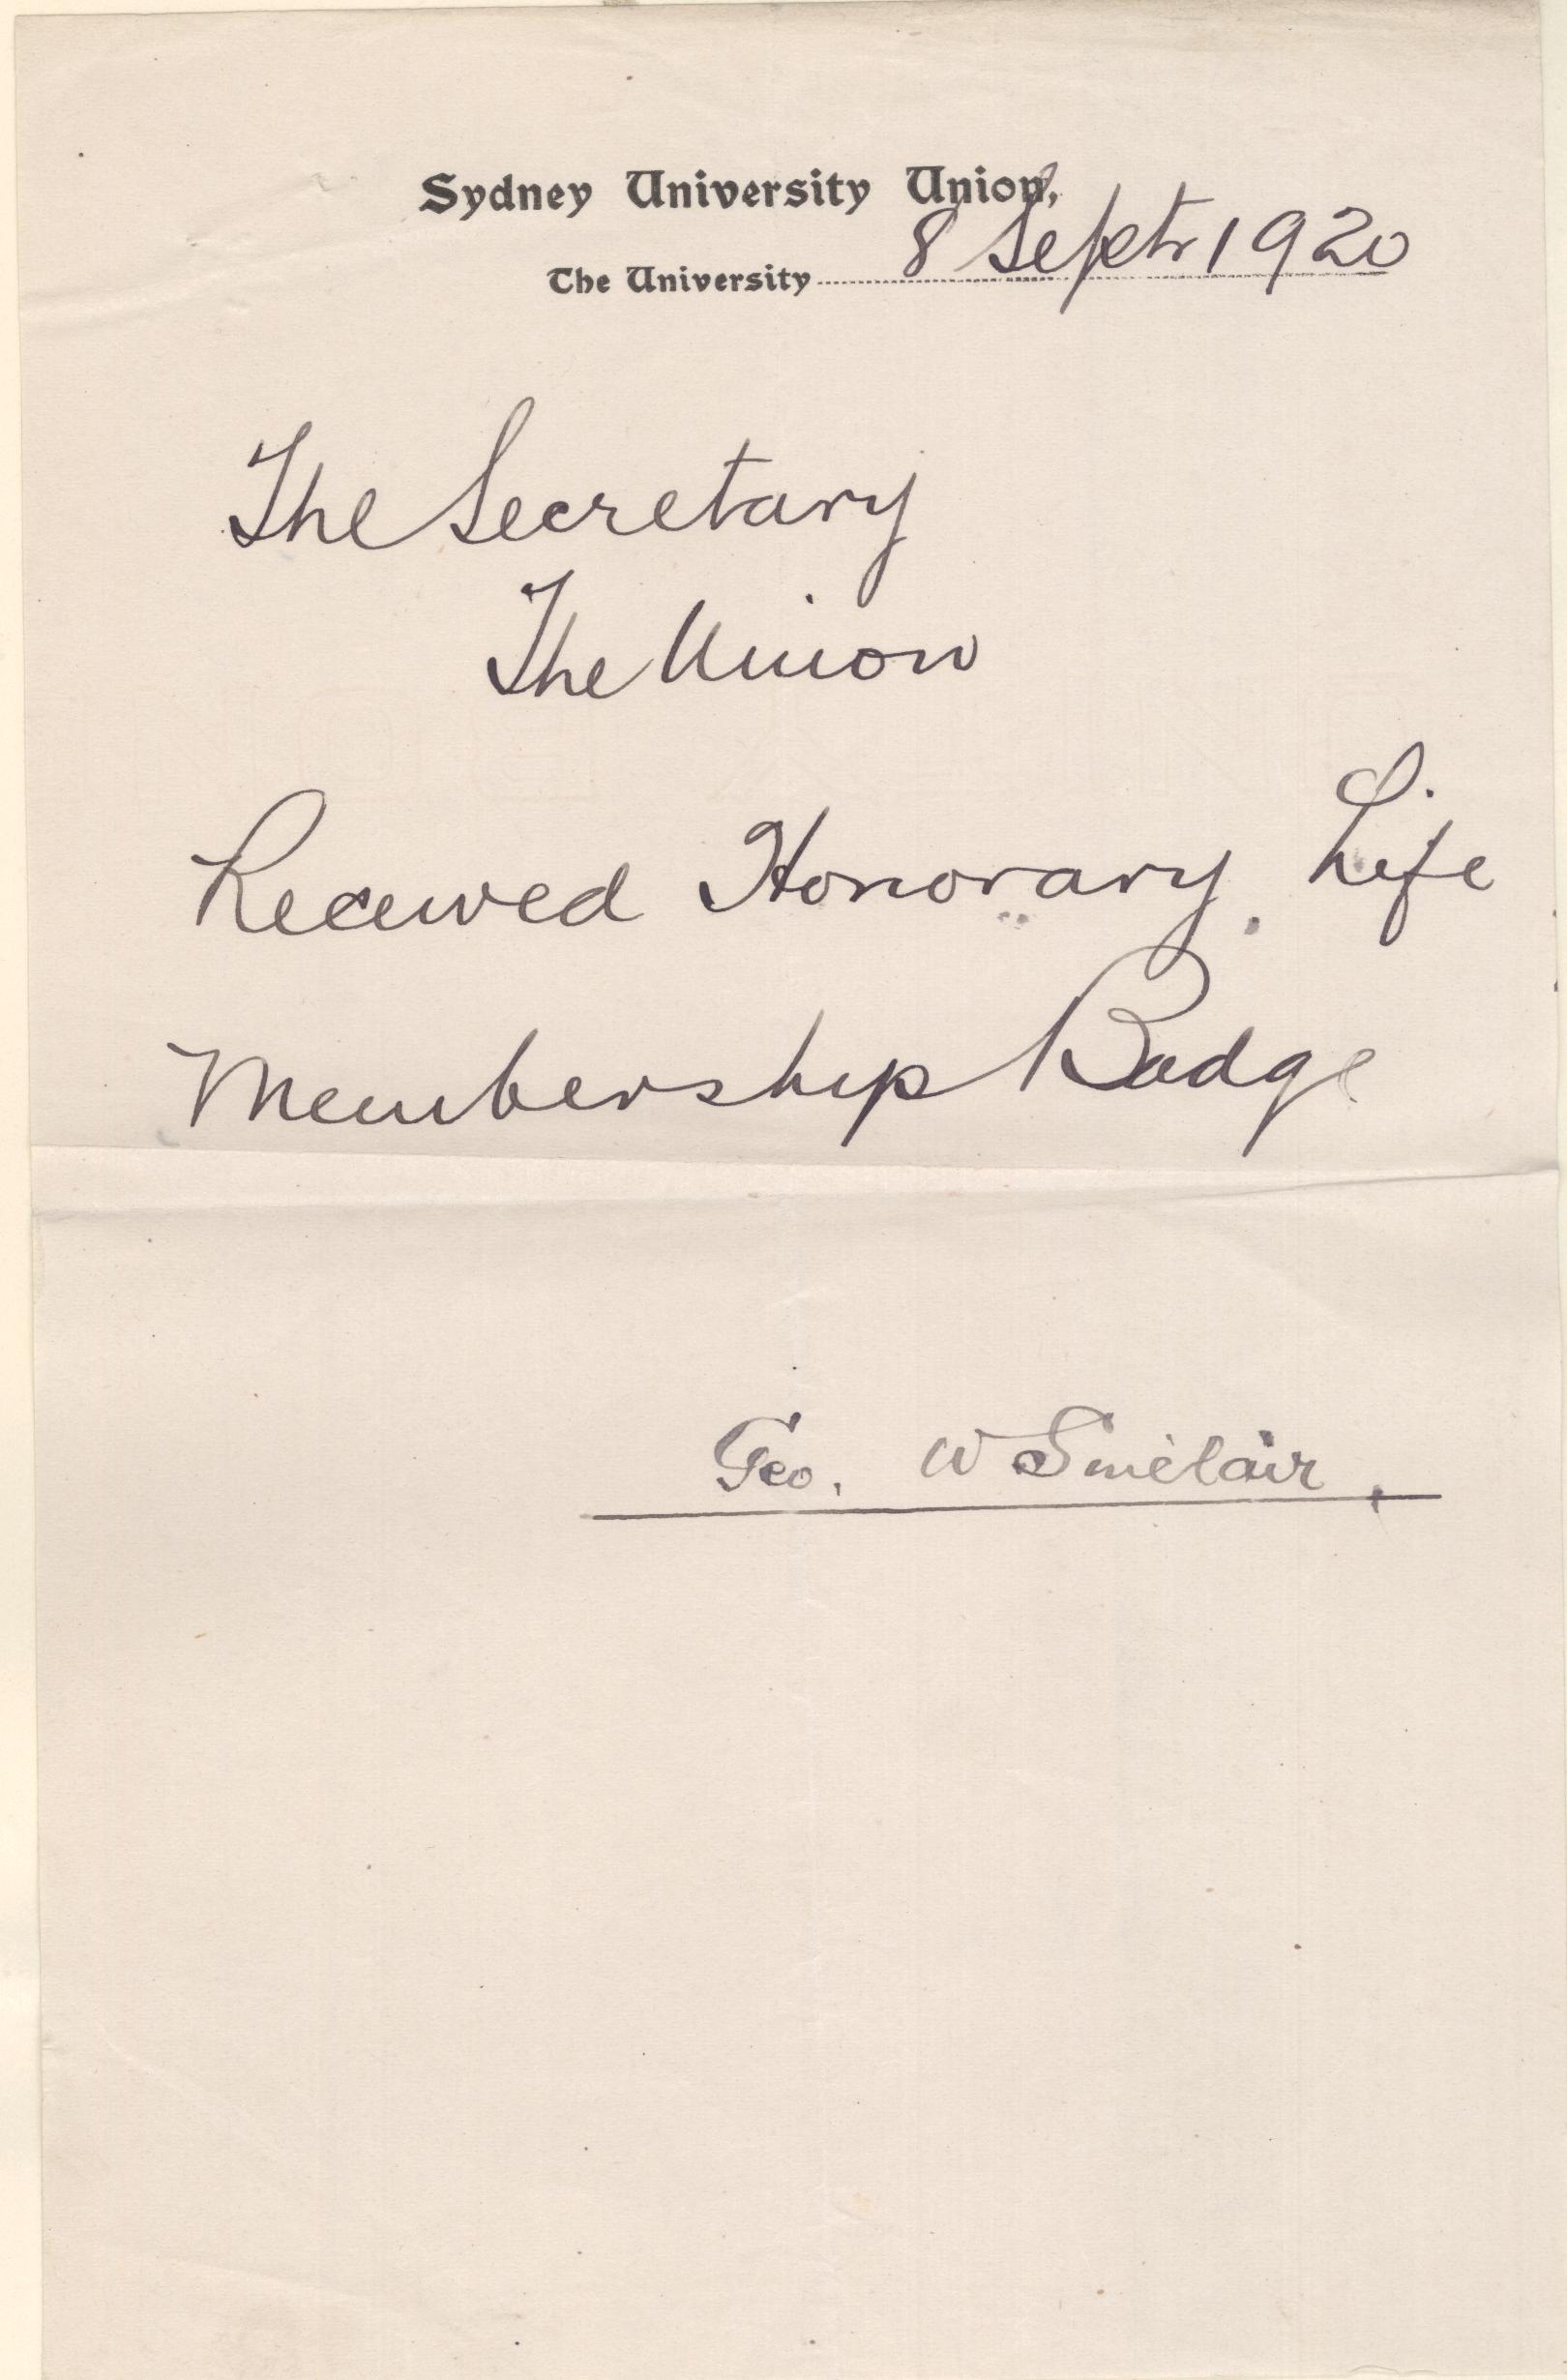 Sydney University Union,
The University 8 Septr 1920
The Secretary
The Union
Received Honorary Life
Membership Badge
Geo. W Sinclair.